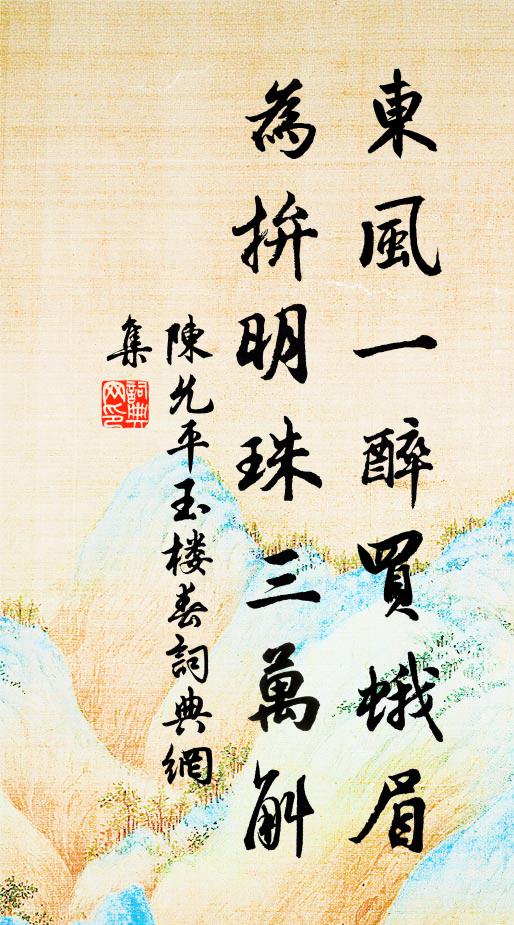 東風一醉買蛾眉
為拚明珠三萬斛
陳允平玉楼春詞典網
集
詞典網印